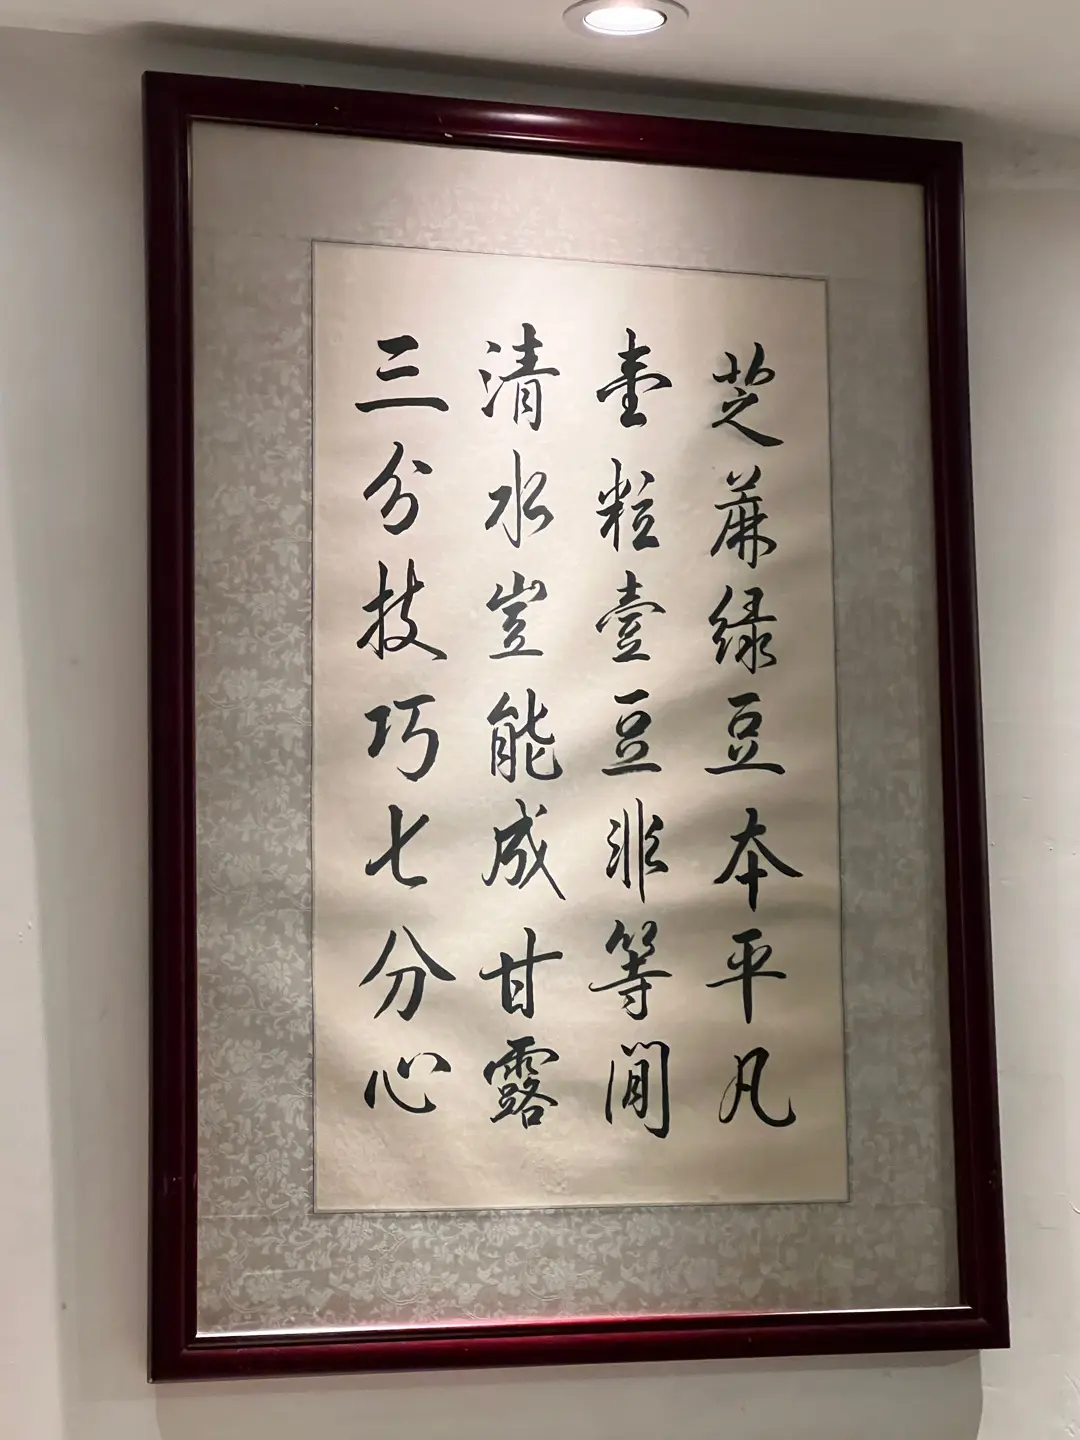 芝蔴緑豆本平凡
壹粒壹豆非等閒
清水豈能成甘露
三分技巧七分心